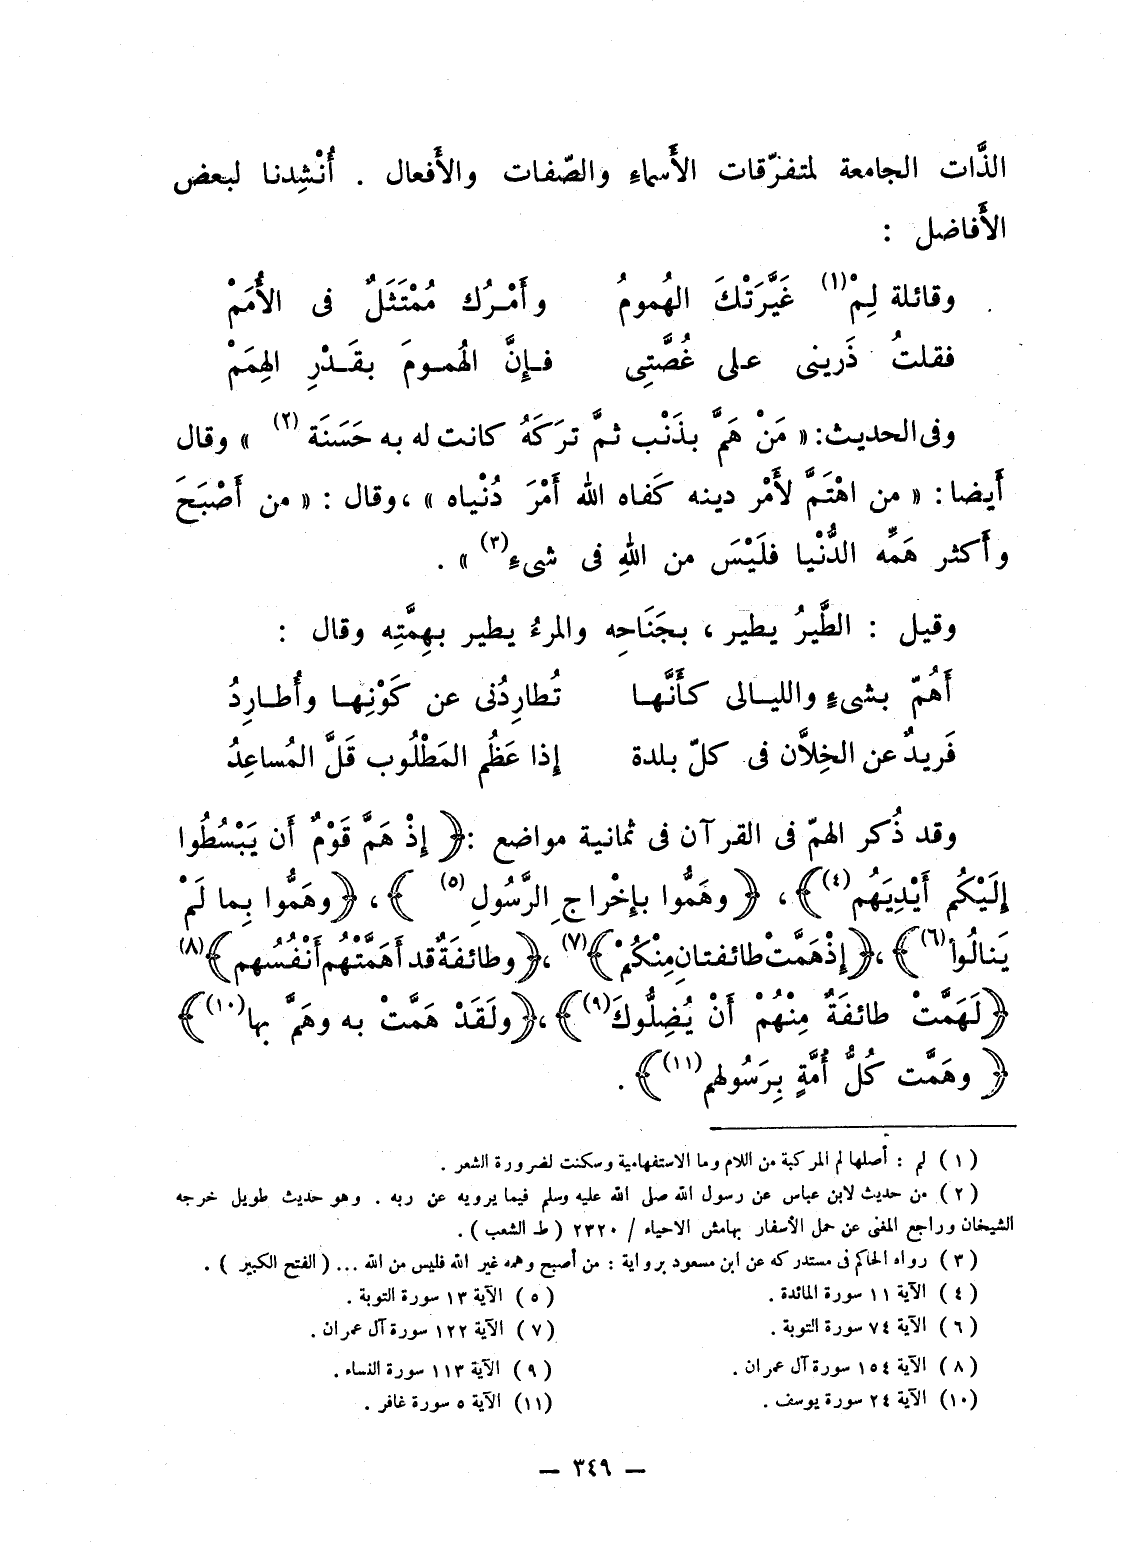 الذَّات الجامعة لمتفرّقات الأَسماءِ والصّفات والأَفعال . أُنْشِدنا لبعض
الأَفاضل :
وقائلة لِمْ(١) غَيَّرَتْكَ الهُمومُ وأَمْرُك مُمْتَثَلٌ فى الأُمَمْ
فقلتُ ذَرينى على غُصَّتِى فإِنَّ الهُمومَ بقَدْرِ الهِمَمْ
وفى الحديث: « مَنْ هَمَّ بذَنْب ثمَّ تركَهُ كانت له به حَسَنَة (٢) » وقال
أَيضا : « من اهْتَمَّ لأَمْر دينه كَفاه الله أَمْرَ دُنْياه » ، وقال : « من أَصْبَحَ
وأَكثر هَمِّه الدُّنْيا فلَيْسَ من اللهِ فى شىءٍ(٣) » .
وقيل : الطَّيرُ يطير ، بجَنَاحِه والمرءُ يطير بهِمَّتِه وقال :
أَهُمّ بشىءٍ والليالى كأَنَّها تُطارِدُنى عن كَوْنِها وأُطارِدُ
فَريدٌ عن الخِلاَّن فى كلّ بلدة إذا عَظُم المَطْلُوب قَلَّ المُساعِدُ
وقد ذُكر الهمّ فى القرآن فى ثمانية مواضع : ﴿ إِذْ هَمَّ قَوْمٌ أَن يَبْسُطُوا
إِلَيْكُم أَيْدِيَهُم(٤) ﴾ ، ﴿ وهَمُّوا بإِخْراجِ الرَّسُولِ (٥) ﴾ ، ﴿ وهَمُّوا بِما لَمْ
يَنالُوا(٦) ﴾ ، ﴿ إِذْ هَمَّتْ طائفتانِ مِنْكُمْ ﴾(٧) ، ﴿ وطائفَةٌ قد أَهَمَّتْهُم أَنْفُسُهم ﴾(٨)
﴿ لَهَمَّتْ طائفَةٌ مِنْهُمْ أَنْ يُضِلُّوكَ(٩) ﴾ ، ﴿ ولَقَدْ هَمَّتْ به وهَمَّ بها(١٠) ﴾
﴿ وهَمَّت كُلُّ أُمَّةٍ بِرَسُولهم(١١) ﴾ .
(١) لم : أصلها لم المركبة من اللام وما الاستفهامية وسكنت لضرورة الشعر .
(٢) من حديث لابن عباس عن رسول الله صلى الله عليه وسلم فيما يرويه عن ربه . وهو حديث طويل خرجه
الشيخان وراجع المغنى عن حمل الأسفار بهامش الاحياء / ٢٣٢٠ (ط الشعب) .
(٣) رواه الحاكم فى مستدركه عن ابن مسعود برواية : من أصبح وهمه غير الله فليس من الله ... (الفتح الكبير) .
(٤) الآية ١١ سورة المائدة . (٥) الآية ١٣ سورة التوبة .
(٦) الآية ٧٤ سورة التوبة . (٧) الآية ١٢٢ سورة آل عمران .
(٨) الآية ١٥٤ سورة آل عمران . (٩) الآية ١١٣ سورة النساء .
(١٠) الآية ٢٤ سورة يوسف . (١١) الآية ٥ سورة غافر .
— ٣٤٩ —